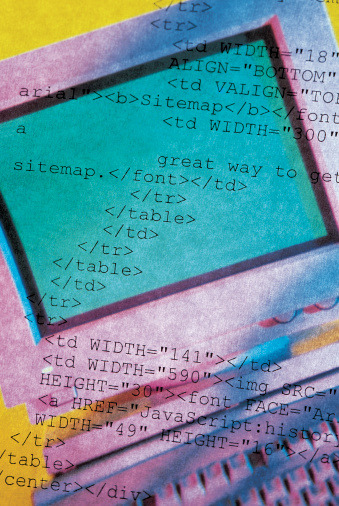 </tr>
<tr>
<td WIDTH="18"
ALIGN="BOTTOM"
<td VALIGN="TOP
arial"><b>Sitemap</b></font
<td WIDTH="300"
a
great way to get
sitemap.</font></td>
</tr>
</table>
</td>
</tr>
</table>
</td>
</tr>
<tr>
<td WIDTH="141"></td>
<td WIDTH="590"><img SRC="
HEIGHT="30"><font FACE="Ar
<a HREF="JavaScript:history
WIDTH="49" HEIGHT="16"></a
</tr>
/table>
/center></div>